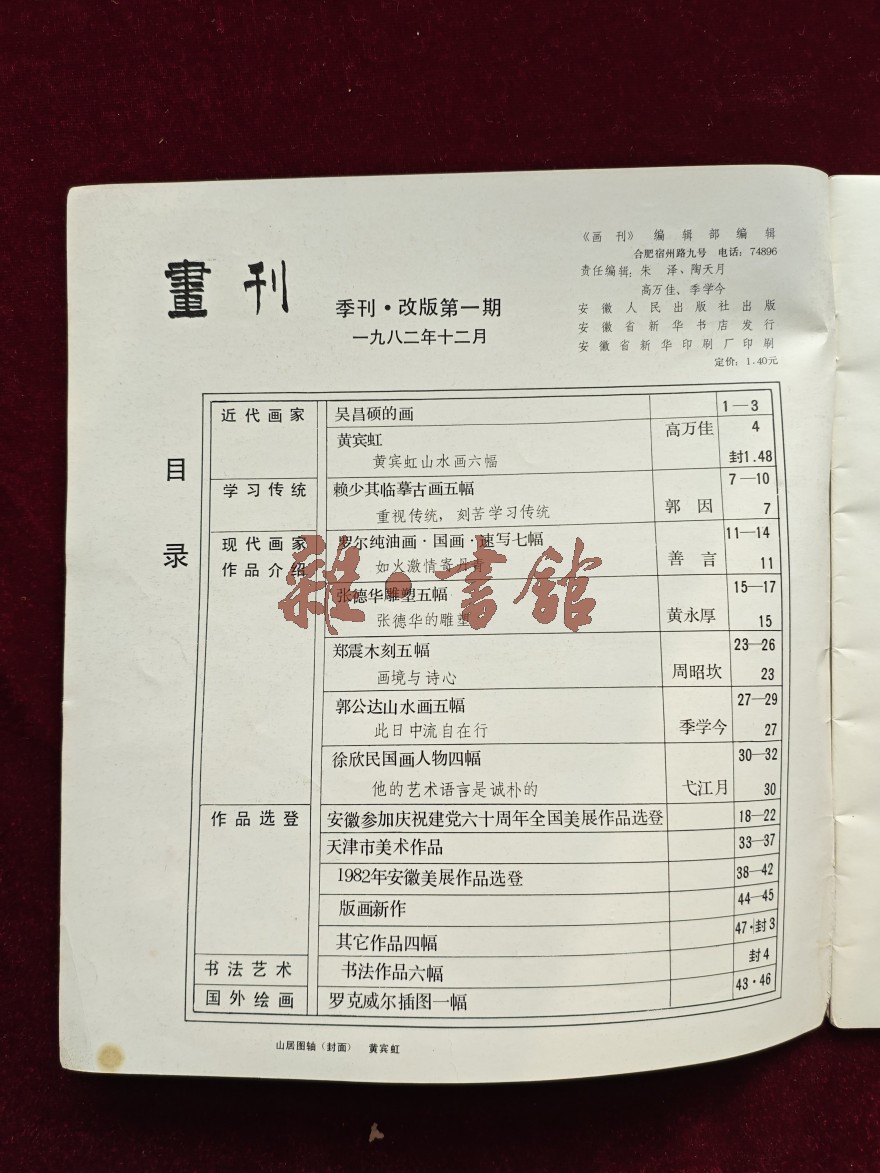 畫刊
季刊·改版第一期
一九八二年十二月
《画刊》编辑部编辑
合肥宿州路九号 电话：74896
责任编辑：朱 泽、陶天月
高万佳、季学今
安徽人民出版社出版
安徽省新华书店发行
安徽省新华印刷厂印刷
定价：1.40元
目录
近代画家 吴昌硕的画 1—3
黄宾虹 高万佳 4
黄宾虹山水画六幅 封1.48
学习传统 赖少其临摹古画五幅 7—10
重视传统，刻苦学习传统 郭因 7
现代画家 罗尔纯油画·国画·速写七幅 11—14
作品介绍 如火激情寄丹青 善言 11
张德华雕塑五幅 15—17
张德华的雕塑 黄永厚 15
郑震木刻五幅 23—26
画境与诗心 周昭坎 23
郭公达山水画五幅 27—29
此日中流自在行 季学今 27
徐欣民国画人物四幅 30—32
他的艺术语言是诚朴的 弋江月 30
作品选登 安徽参加庆祝建党六十周年全国美展作品选登 18—22
天津市美术作品 33—37
1982年安徽美展作品选登 38—42
版画新作 44—45
其它作品四幅 47·封3
书法艺术 书法作品六幅 封4
国外绘画 罗克威尔插图一幅 43·46
山居图轴（封面） 黄宾虹
雜·書館